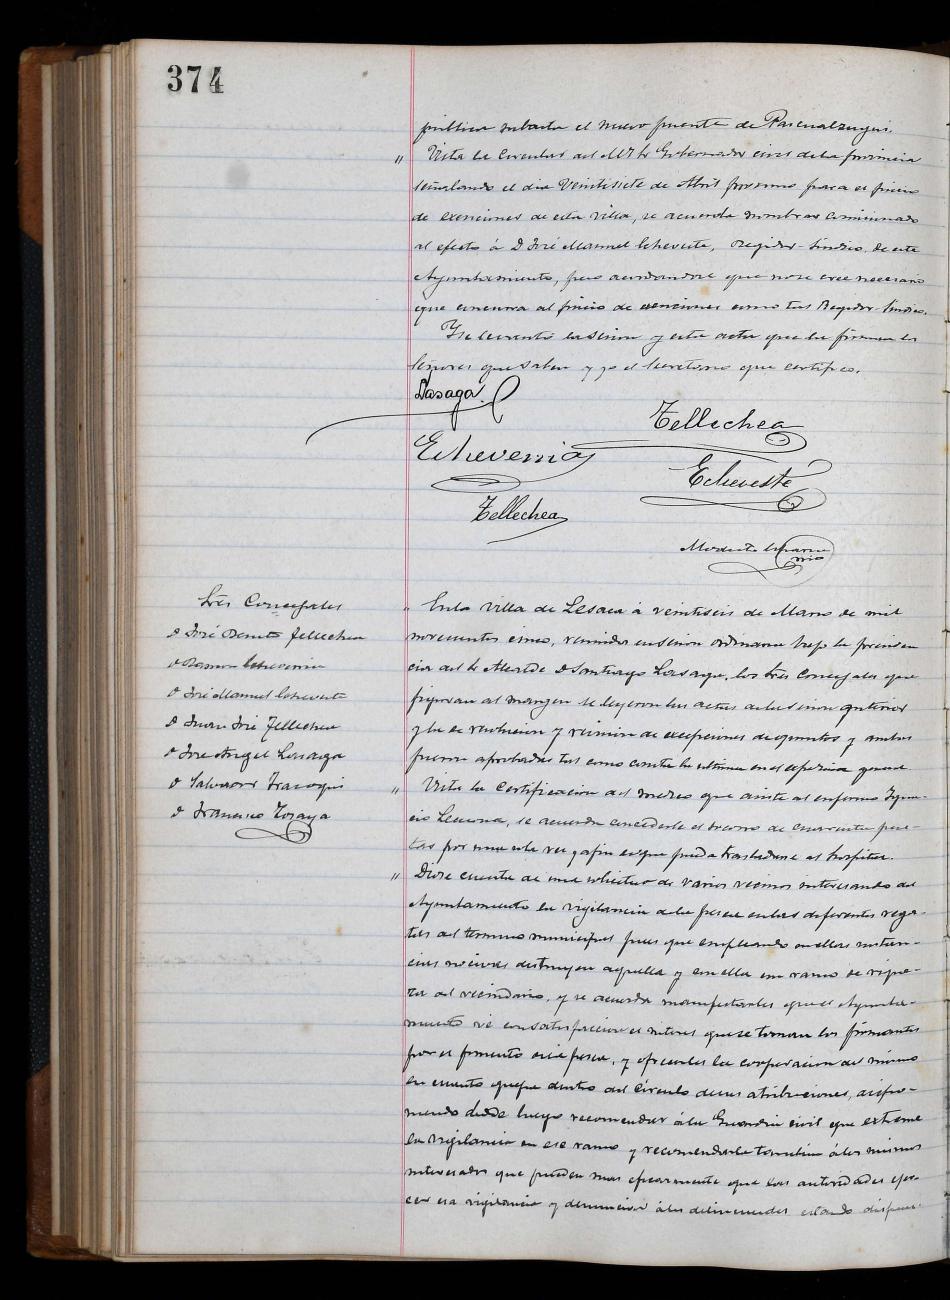 374
pública subasta el nuevo puente de
" Vista la Circular del M. I. Sr Gobernador civil de la provincia
señalando el dia Veintisiete de Abril proximo para el juicio
de exenciones de esta villa, se acuerda nombrar comisionado
al efecto á D José Manuel Echeveste, Regidor-Síndico de este
Ayuntamiento, pues que no se cree necesario
que concurra al juicio de exenciones como tal Regidor-Síndico.
Y se levantó la sesion y esta acta que la firman los
Señores que saben y yo el Secretario que certifico.
Lasaga
Tellechea
Echeverria
Echeveste
Tellechea
Modesto
Sres Concejales
D José Benito Tellechea
D Ramon Echeverria
D José Manuel Echeveste
D Juan José Tellechea
D José Angel Lasaga
D Salvador
D Francisco Toraya
" En la Villa de Lesaca á veintiseis de Marzo de mil
novecientos cinco, reunidos en sesion ordinaria bajo la presiden
cia del Sr Alcalde D Santiago Lasaga, los Sres Concejales que
figuran al margen se leyeron las actas de la sesion anterior
y la de resolucion y revision de excepciones de quintos y ambas
fueron aprobadas tal como consta la ultima en el expediente general
" Vista la Certificacion del medico que asiste al enfermo Igna-
cio Lecuona, se acuerda concederle el socorro de cuarenta pese-
tas por una sola vez y á fin de que pueda trasladarse al hospital.
" Diose cuenta de una solicitud de varios vecinos interesando del
Ayuntamiento la vigilancia de la pesca en las diferentes rega-
tas del termino municipal pues que empleando en ellas sustan-
cias nocivas destruyen aquella y con ella un ramo de rique-
za del vecindario, y se acuerda manifestarles que el Ayunta-
miento vé con satisfaccion el interes que se toman los firmantes
por el fomento de la pesca, y ofrecerles la cooperacion del mismo
en cuanto quepa dentro del círculo de sus atribuciones, dispo-
niendo desde luego recomendar á la Guardia civil que extreme
la vigilancia en ese ramo y recomendarle tambien á los mismos
interesados que pueden mas eficazmente que las autoridades ejer-
cer esa vigilancia y denunciar á los delincuentes estando dispues-